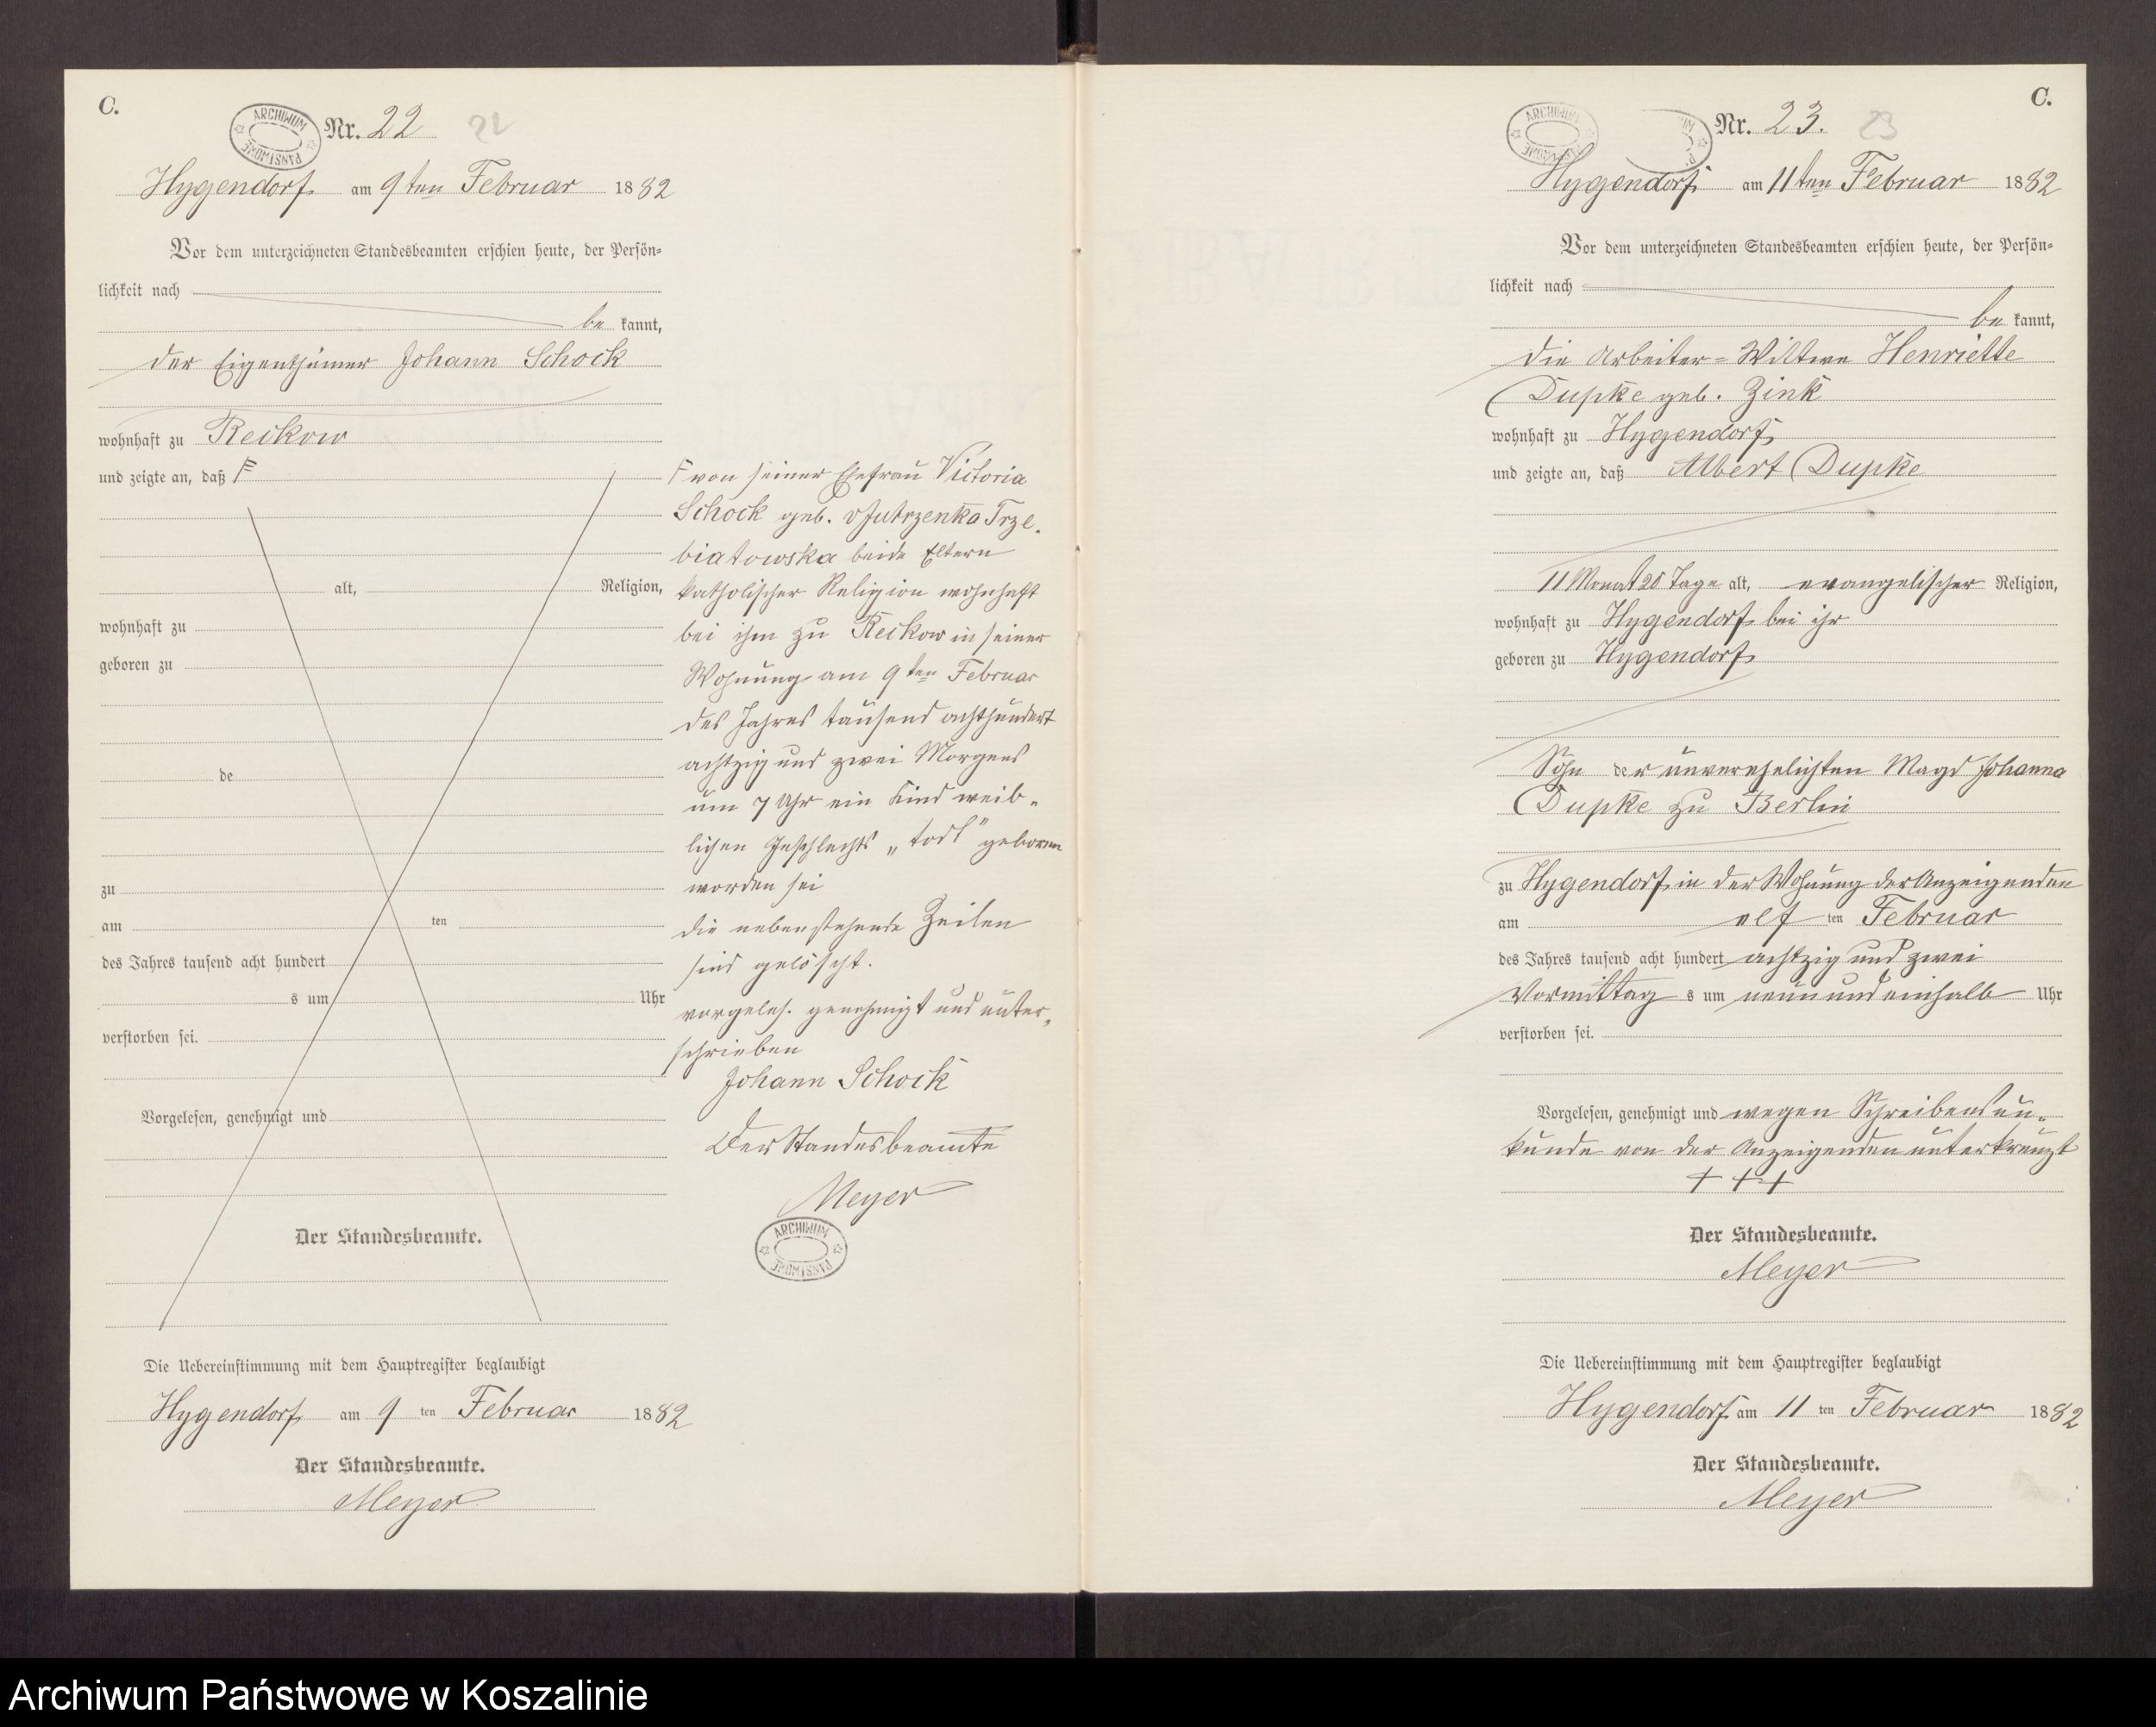 C.
ARCHIWUM PAŃSTWOWE
Nr. 22 22
Hygendorf am 9ten Februar 1882
Vor dem unterzeichneten Standesbeamten erschien heute, der Persön-
lichkeit nach
be kannt,
der Eigenthümer Johann Schock
wohnhaft zu Reckow
und zeigte an, daß
alt, Religion,
wohnhaft zu
geboren zu
de
zu
am ten
des Jahres tausend acht hundert
s um Uhr
verstorben sei.
Vorgelesen, genehmigt und
Der Standesbeamte.
Die Uebereinstimmung mit dem Hauptregister beglaubigt
Hygendorf am 9 ten Februar 1882
Der Standesbeamte.
Meyer
von seiner Ehefrau Victoria
Schock geb. v Jutrzenka Trze-
biatowska beide Eltern
katholischer Religion wohnhaft
bei ihm zu Reckow in seiner
Wohnung am 9ten Februar
des Jahres tausend achthundert
achtzig und zwei Morgens
um 7 Uhr ein Kind weib-
lichen Geschlechts „todt" geboren
worden sei
die nebenstehende Zeilen
sind gelöscht.
vorgeles. genehmigt und unter-
schrieben
Johann Schock
Der Standesbeamte
Meyer
ARCHIWUM PAŃSTWOWE
C.
ARCHIWUM PAŃSTWOWE
Nr. 23. 23
Hygendorf am 11ten Februar 1882
Vor dem unterzeichneten Standesbeamten erschien heute, der Persön-
lichkeit nach
be kannt,
die Arbeiter-Wittwe Henriette
Dupke geb. Zink
wohnhaft zu Hygendorf
und zeigte an, daß Albert Dupke
11 Monat 20 Tage alt, evangelischer Religion,
wohnhaft zu Hygendorf bei ihr
geboren zu Hygendorf
Sohn der unverehelichten Magd Johanna
Dupke zu Berlin
zu Hygendorf in der Wohnung der Anzeigenden
am elf ten Februar
des Jahres tausend acht hundert achtzig und zwei
Vormittag s um neun und einhalb Uhr
verstorben sei.
Vorgelesen, genehmigt und wegen Schreibensun-
kunde von der Anzeigenden unterkreuzt
+ + +
Der Standesbeamte.
Meyer
Die Uebereinstimmung mit dem Hauptregister beglaubigt
Hygendorf am 11 ten Februar 1882
Der Standesbeamte.
Meyer
Archiwum Państwowe w Koszalinie